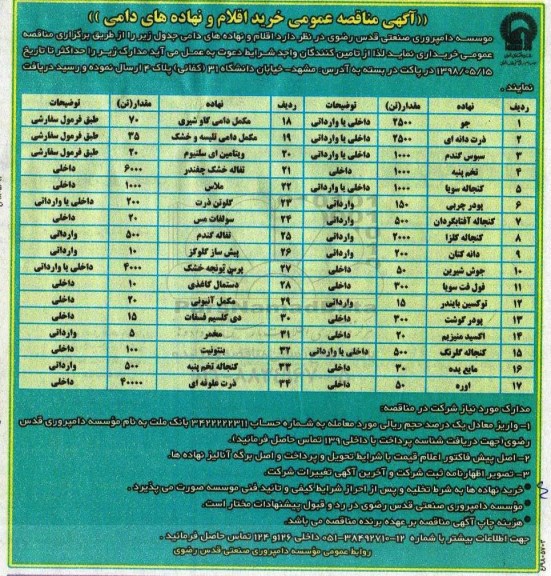 ((آگهی مناقصه عمومی خرید اقلام و نهاده های دامی))
موسسه دامپروری صنعتی قدس رضوی در نظر دارد اقلام و نهاده های دامی جدول زیر را از طریق برگزاری مناقصه
عمومی خریداری نماید لذا از تامین کنندگان واجد شرایط دعوت به عمل می آید مدارک زیر را حداکثر تا تاریخ
۱۳۹۸/۰۵/۱۵ در پاکت در بسته به آدرس: مشهد-خیابان دانشگاه ۳۱ (کفائی) پلاک ۴ ارسال نموده و رسید دریافت
نمایند.
ردیف نهاده مقدار(تن) توضیحات ردیف نهاده مقدار(تن) توضیحات
۱ جو ۲۵۰۰ داخلی یا وارداتی ۱۸ مکمل دامی گاو شیری ۷۰ طبق فرمول سفارشی
۲ ذرت دانه ای ۲۵۰۰ داخلی یا وارداتی ۱۹ مکمل دامی تلیسه و خشک ۳۵ طبق فرمول سفارشی
۳ سبوس گندم ۱۰۰۰ داخلی یا وارداتی ۲۰ ویتامین ای سلنیوم ۲۰ طبق فرمول سفارشی
۴ تخم پنبه ۱۰۰۰ داخلی ۲۱ تفاله خشک چغندر ۶۰۰۰ داخلی
۵ کنجاله سویا ۱۰۰۰ داخلی یا وارداتی ۲۲ ملاس ۱۰۰۰ داخلی
۶ پودر چربی ۱۵۰ وارداتی ۲۳ گلوتن ذرت ۲۰۰ داخلی یا وارداتی
۷ کنجاله آفتابگردان ۵۰۰ وارداتی ۲۴ سولفات مس ۲۰ داخلی
۸ کنجاله کلزا ۲۰۰۰ وارداتی ۲۵ تفاله گندم ۵۰۰ وارداتی
۹ دانه کتان ۲۰۰ وارداتی ۲۶ پیش ساز گلوکز ۱۰ وارداتی
۱۰ جوش شیرین ۵۰ داخلی ۲۷ پرس یونجه خشک ۴۰۰۰ داخلی یا وارداتی
۱۱ فول فت سویا ۳۰۰ داخلی ۲۸ دستمال کاغذی ۱۰ داخلی
۱۲ توکسین بایندر ۱۵ وارداتی ۲۹ مکمل آنیونی ۲۰ داخلی
۱۳ پودر گوشت ۳۰۰ داخلی ۳۰ دی کلسیم فسفات ۱۵ داخلی
۱۴ اکسید منیزیم ۲۰ داخلی ۳۱ مخمر ۵ وارداتی
۱۵ کنجاله گلرنگ ۵۰۰ داخلی یا وارداتی ۳۲ بنتونیت ۱۰۰ داخلی
۱۶ مایع پده ۳۰ داخلی ۳۳ کنجاله تخم پنبه ۵۰۰ وارداتی
۱۷ اوره ۵۰ داخلی ۳۴ ذرت علوفه ای ۴۰۰۰۰ داخلی
مدارک مورد نیاز شرکت در مناقصه:
۱-واریز معادل یک درصد حجم ریالی مورد معامله به شماره حساب ۳۴۲۲۲۲۲۳۱۱ بانک ملت به نام مؤسسه دامپروری قدس
رضوی(جهت دریافت شناسه پرداخت با داخلی ۱۳۹ تماس حاصل فرمائید).
۲- اصل پیش فاکتور اعلام قیمت با شرایط تحویل و پرداخت و اصل برگه آنالیز نهاده ها.
۳- تصویر اظهارنامه ثبت شرکت و آخرین آگهی تغییرات شرکت.
*خرید نهاده ها به شرط تخلیه و پس از احراز شرایط کیفی و تائید فنی موسسه صورت می پذیرد.
*مؤسسه دامپروری صنعتی قدس رضوی در رد و قبول پیشنهادات مختار است.
*هزینه چاپ آگهی مناقصه بر عهده برنده مناقصه می باشد.
جهت اطلاعات بیشتر با شماره ۱۲-۳۸۴۹۲۷۱۰-۰۵۱ داخلی ۱۲۶و ۱۲۴ تماس حاصل فرمائید.
روابط عمومی مؤسسه دامپروری صنعتی قدس رضوی